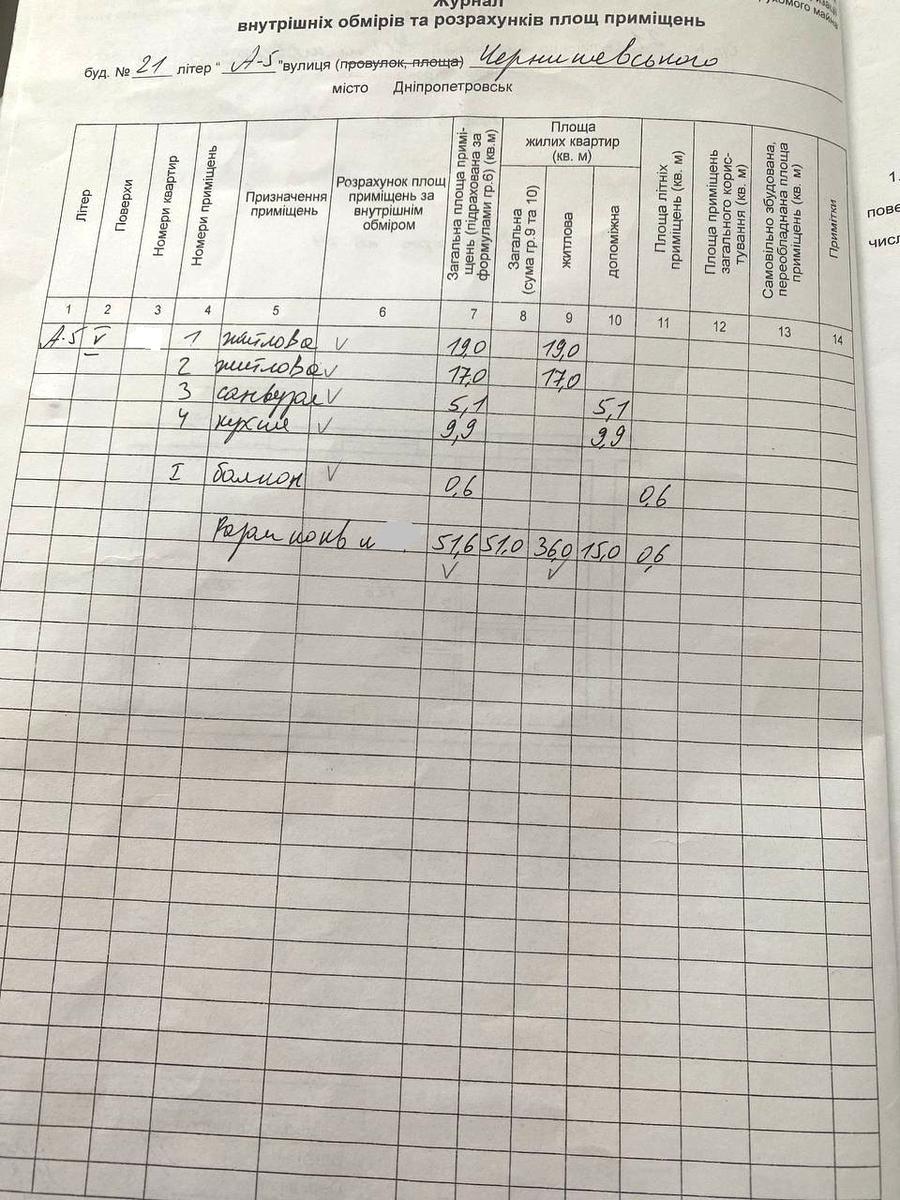 Журнал
внутрішніх обмірів та розрахунків площ приміщень
буд. № 21 літер " А-5 " вулиця (провулок, площа) Чернишевського
місто Дніпропетровськ
Літер
Поверхи
Номери квартир
Номери приміщень
Призначення приміщень
Розрахунок площ приміщень за внутрішнім обміром
Загальна площа примі-
щень (підрахована за
формулами гр.6) (кв.м)
Площа
жилих квартир
(кв. м)
Загальна
(сума гр.9 та 10)
житлова
допоміжна
Площа літніх
приміщень (кв. м)
Площа приміщень
загального корис-
тування (кв. м)
Самовільно збудована,
переобладнана площа
приміщень (кв. м)
Примітки
1 2 3 4 5 6 7 8 9 10 11 12 13 14
А-5 V 1 житлова 19,0 19,0
2 житлова 17,0 17,0
3 санвузол 5,1 5,1
4 кухня 9,9 9,9
I балкон 0,6 0,6
Разом 51,6 51,0 36,0 15,0 0,6
1.
пове
числ